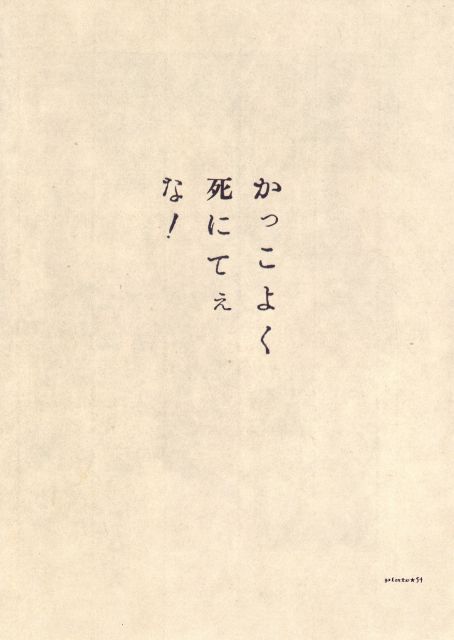 かっこよく
死にてぇ
な！